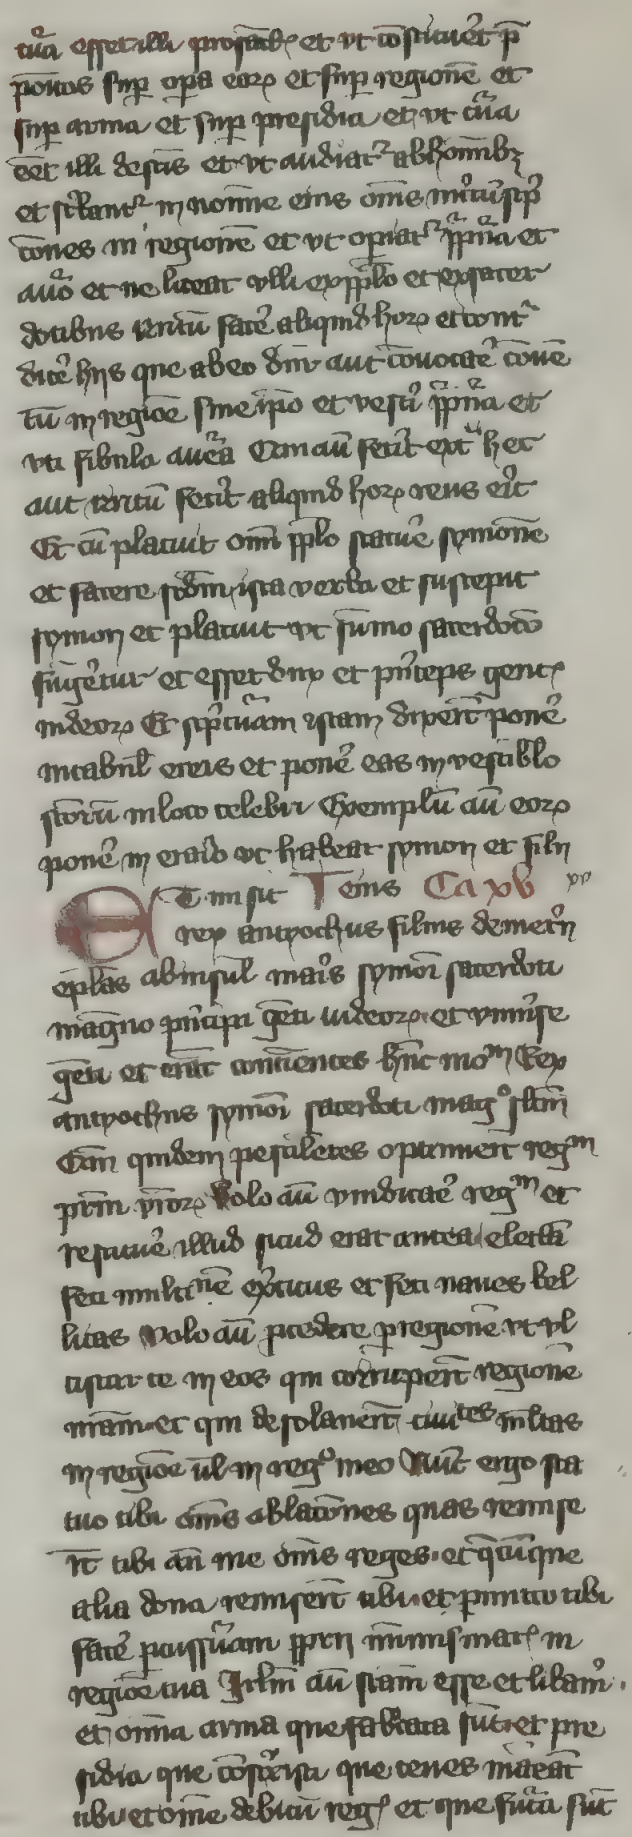 cu̾a esset illi pro sc̄tis et vt cōstitu̾et p̄
positos sup̱ oꝑa eoꝝ et sup̱ regionē et
sup̱ arma et sup̱ presidia et vt cu̾a
eēt illi de sc̄is et vt audiat᷑ ab hōnibꝫ
et sc̾bant᷑ in nomīe eius oēs cōsc̾p
cōnes in regionē et vt opiat᷑ pp̄ura et
auro et ne liceat vlli ex pp̄lo et ex sacer
dotibus irritū face̾ aliquid hoꝝ et cont᷑
dice̾ hijs que ab eo dn̄r aut cōuocare̾ cōuē
tū in regiōe sine ip̄o et vesti̾ pp̄ura et
vti fibula aurea Qui aū feci̾t ext᷑ hec
aut irritū feci̾t aliquid hoꝝ reus e̾it
Et cū placuit omī pp̄lo statue̾ symonē
et facere scd̄m ista verba et suscepit
symon et placuit vt sūmo sacerdoco
fūge̾tur et esset dux et pn̄ceps gent᷑
iudeoꝝ Et sc̾ptu̾am istam dixerūt pone̾
in tabul̄ ereis et pone̾ eas in vestiblo
sc̄orū in loco celebri Exemplū aū eoꝝ
pone̾ in erario vt habeat symon et filij
ET misit Teius Ca xv xv
rex antyochus filius demet̾ij
ep̄las ab insul̄ maris symoi̅ sacerdoti
magno pn̄cipi gēti iudeoꝝ et vniu̾se
gēti et erāt contīentes hūc moᵐ Rex
antyochus symoi̅ sacerdoti magᵒ sl̄tm̄
Qm̄ quidem pestilētes optinuerūt regᵐ
pr̄m nr̄oꝝ Volo aū vindicare̾ regᵐ et
restitue̾ illud sicud erat antea et elc̄am
feci multitᵘᵈⁱnē exe̾citus et feci naues bel
licas Volo aū p̱cedere ꝑ regionē vt vl
ciscar te in eos qui corruperūt regionē
nr̄am et qui desolauerūt ciuitᵃᵗes ml̄tas
in regiōe ul̄ in regᵒ meo Nūc ergo sta
tuo tibi oēs oblacōnes quas remise
rūt tibi an̄ me oēs reges et q̄cūque
alia dona remiserūt tibi et ꝑmitto tibi
face̾ ꝑcussu̾am pprij nūmismat᷑ in
regiōe tua Irl̄m aū sc̄am esse et libam̾
et oīa arma que fabricata sūt et pre
sidia que cōstruxisti que tenes maneāt
tibi et om̄e debitū reg᷑ et que futu̾a sūt